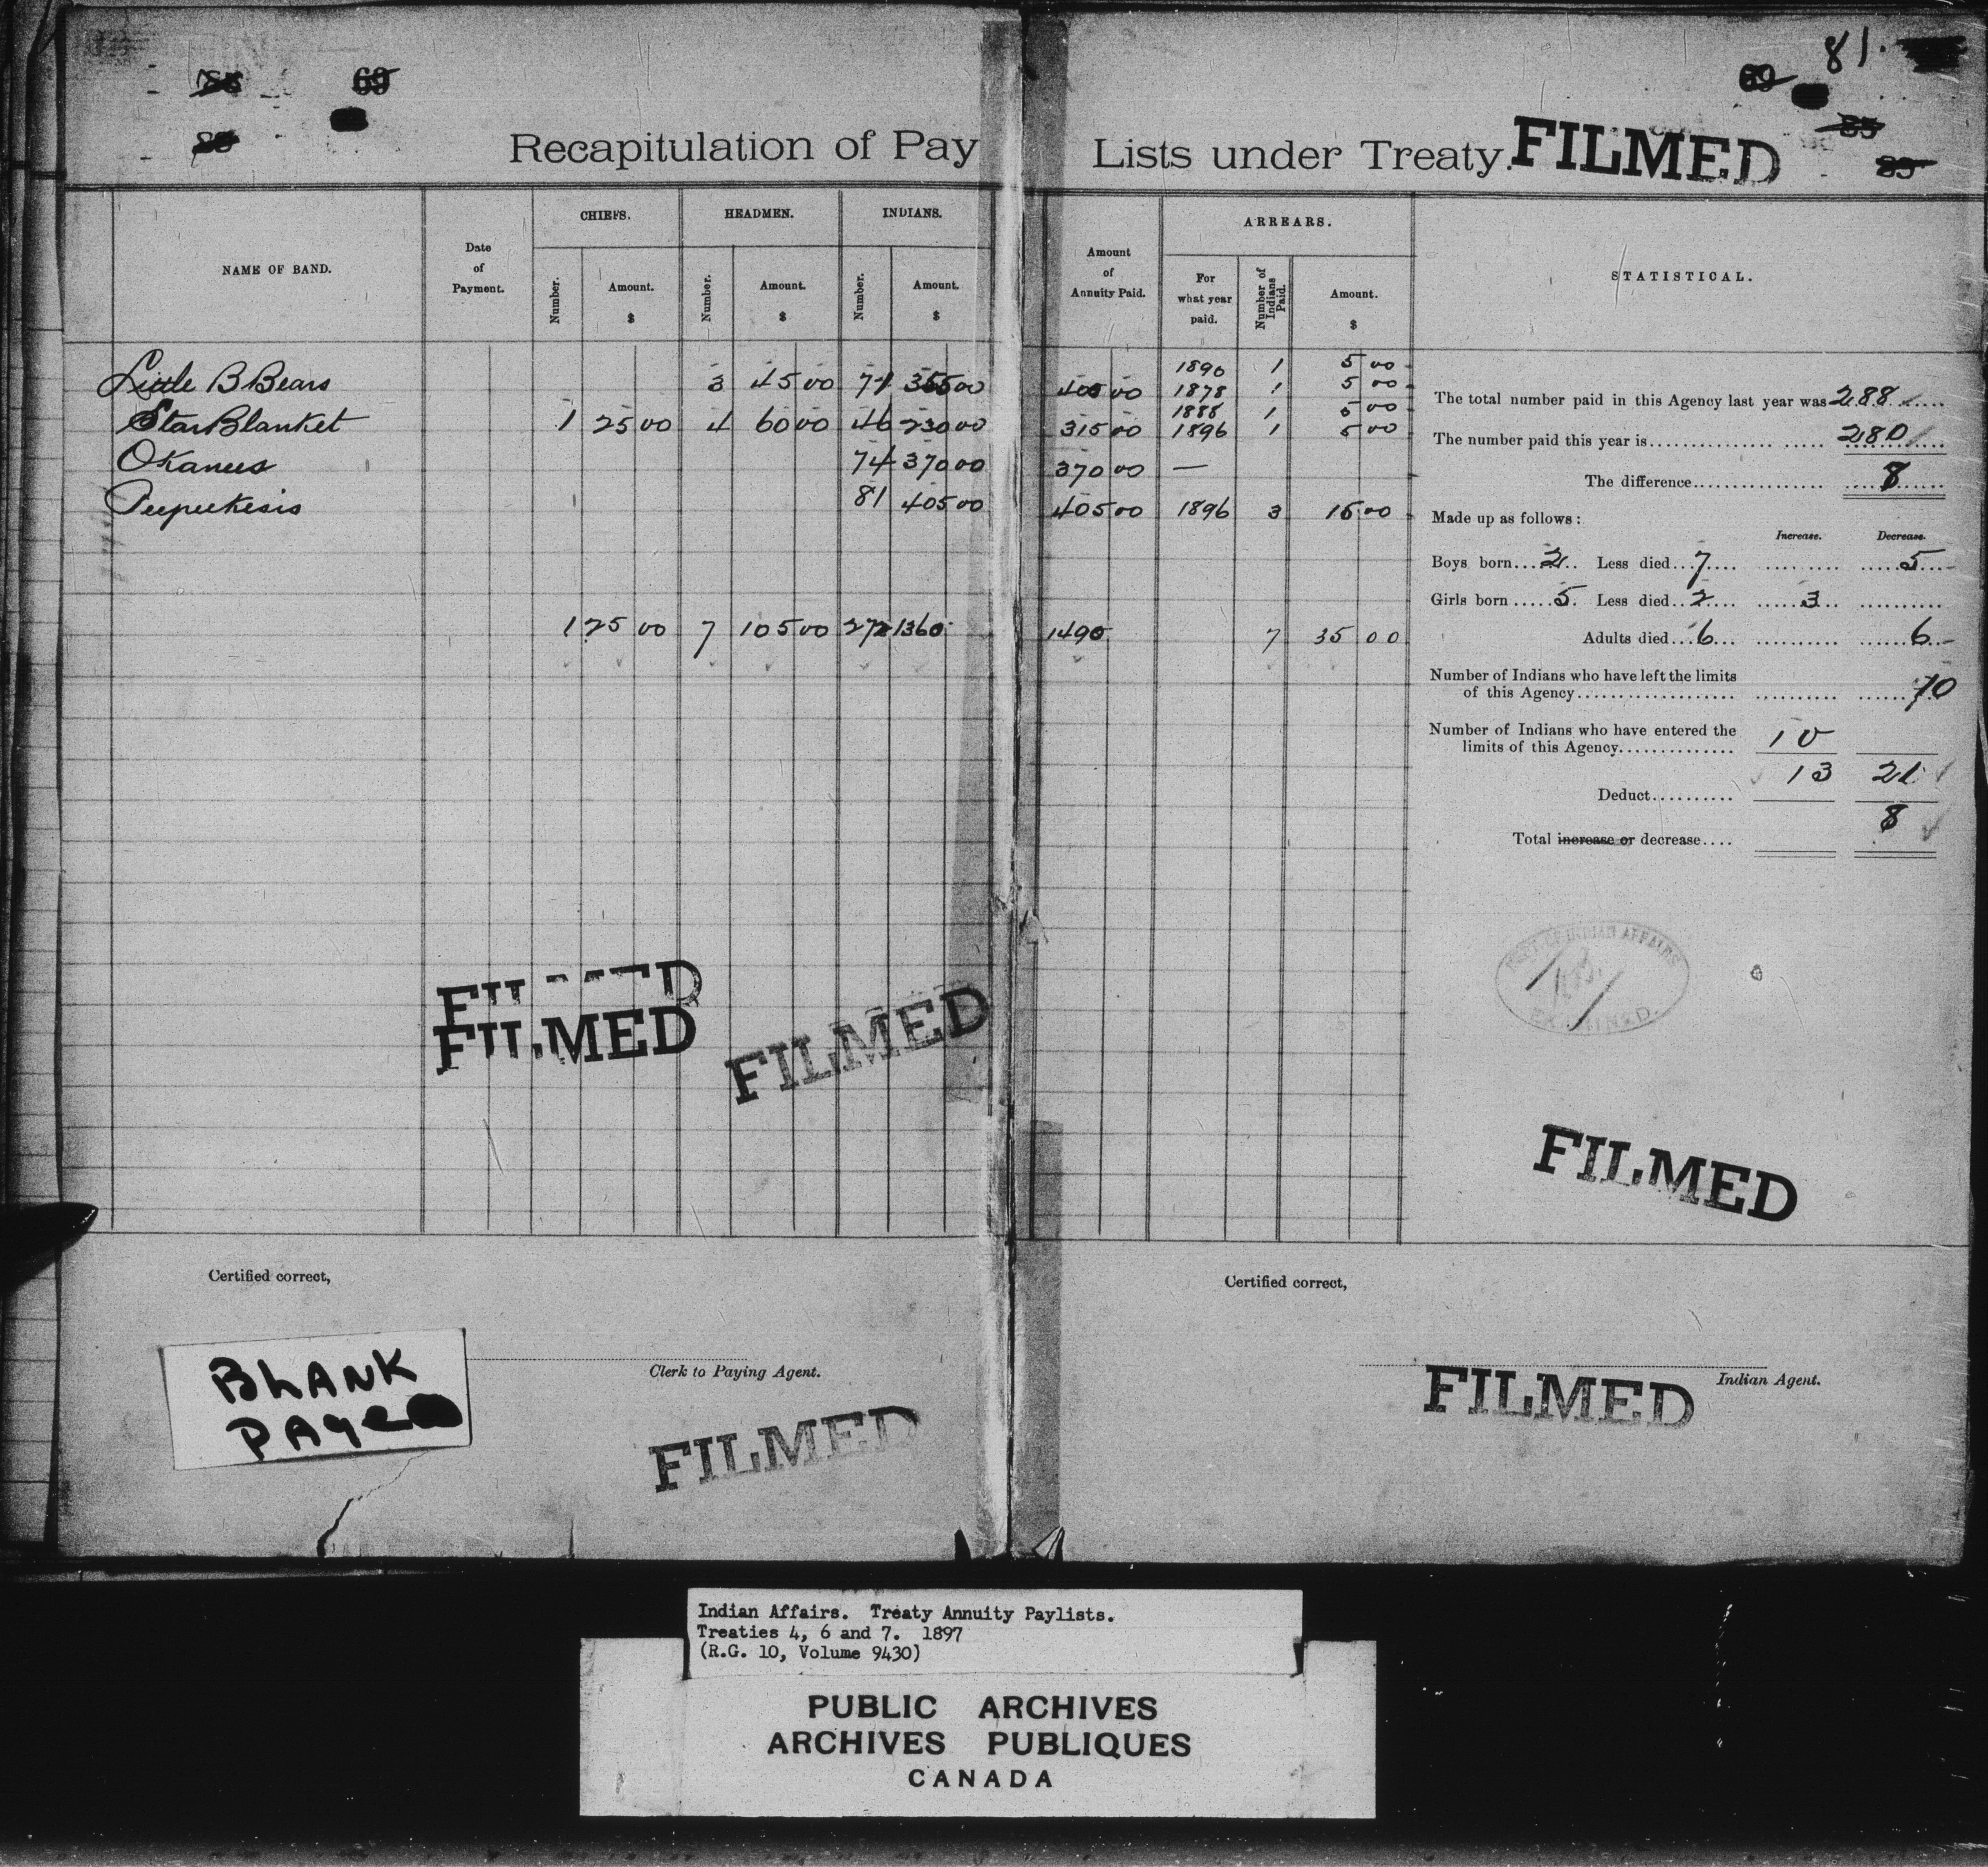 69
69
81.
85
85
Recapitulation of Pay Lists under Treaty. FILMED
NAME OF BAND.
Date of Payment.
CHIEFS.
HEADMEN.
INDIANS.
Number.
Amount. $
Number.
Amount. $
Number.
Amount. $
Amount of Annuity Paid.
ARREARS.
For what year paid.
Number of Indians Paid.
Amount. $
STATISTICAL.
1890 1 5 00
Little B Bears 3 45 00 71 355 00 400 00 1878 1 5 00
1888 1 5 00
Star Blanket 1 25 00 4 60 00 46 230 00 315 00 1896 1 5 00
Okanees 74 370 00 370 00 —
Peepeekesis 81 405 00 405 00 1896 3 15 00
1 25 00 7 105 00 272 1360 1490 7 35 00
The total number paid in this Agency last year was 288
The number paid this year is 280
The difference 8
Made up as follows:
Increase. Decrease.
Boys born 2 Less died 7 5
Girls born 5 Less died 2 3
Adults died 6 6
Number of Indians who have left the limits
of this Agency 10
Number of Indians who have entered the
limits of this Agency 10
13 21
Deduct
8
Total increase or decrease
DEPT. OF INDIAN AFFAIRS
EXAMINED.
FILMED
FILMED
FILMED
FILMED
Certified correct,
Certified correct,
BLANK
PAGE
Clerk to Paying Agent.
Indian Agent.
FILMED
FILMED
Indian Affairs. Treaty Annuity Paylists.
Treaties 4, 6 and 7. 1897
(R.G. 10, Volume 9430)
PUBLIC ARCHIVES
ARCHIVES PUBLIQUES
CANADA